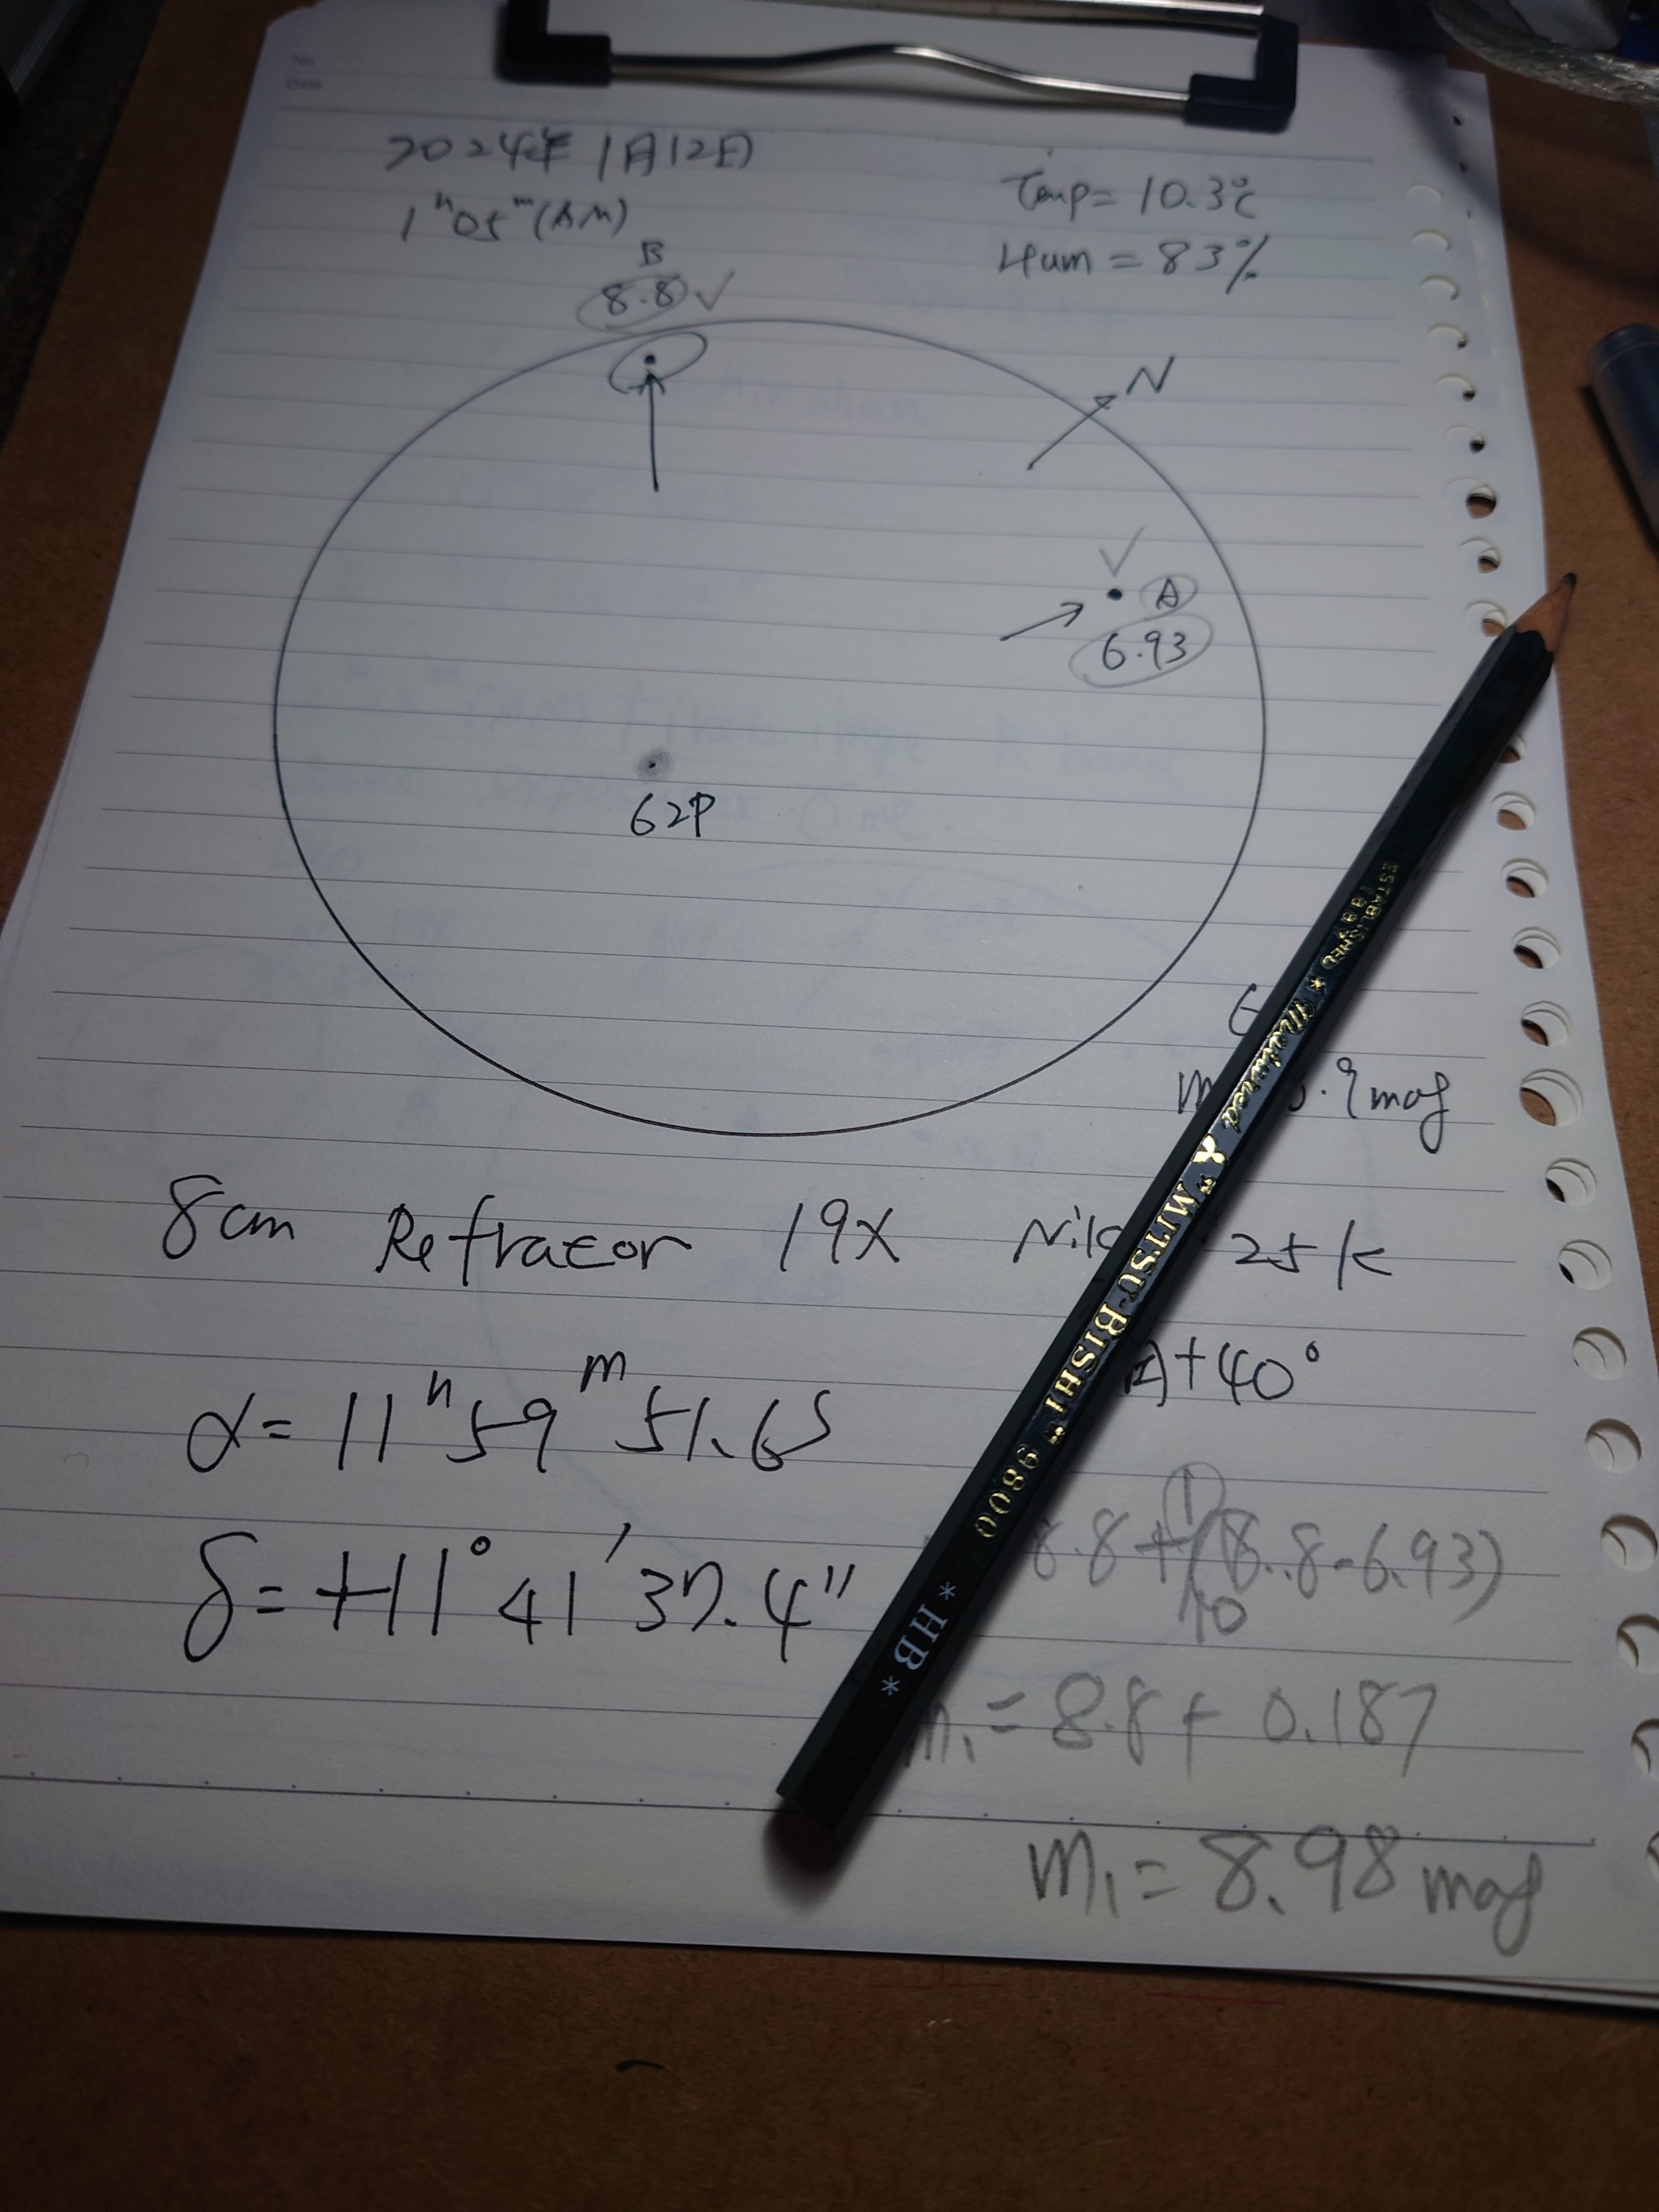 No.
Date
2024年1月12日
1h05m(AM)
Temp= 10.3℃
Hum = 83%
B
8.8✓
N
✓
A
6.93
62P
mag
8cm Refractor 19X 25 K
α= 11h59m51.6s
+40°
δ= +11°41′37.4″
8.8+1/10(8.8-6.93)
m1 = 8.8+ 0.187
m1= 8.98 mag
ESTABLISHED 1887 ★ Matured "MITSU-BISHI" 9800 *HB*